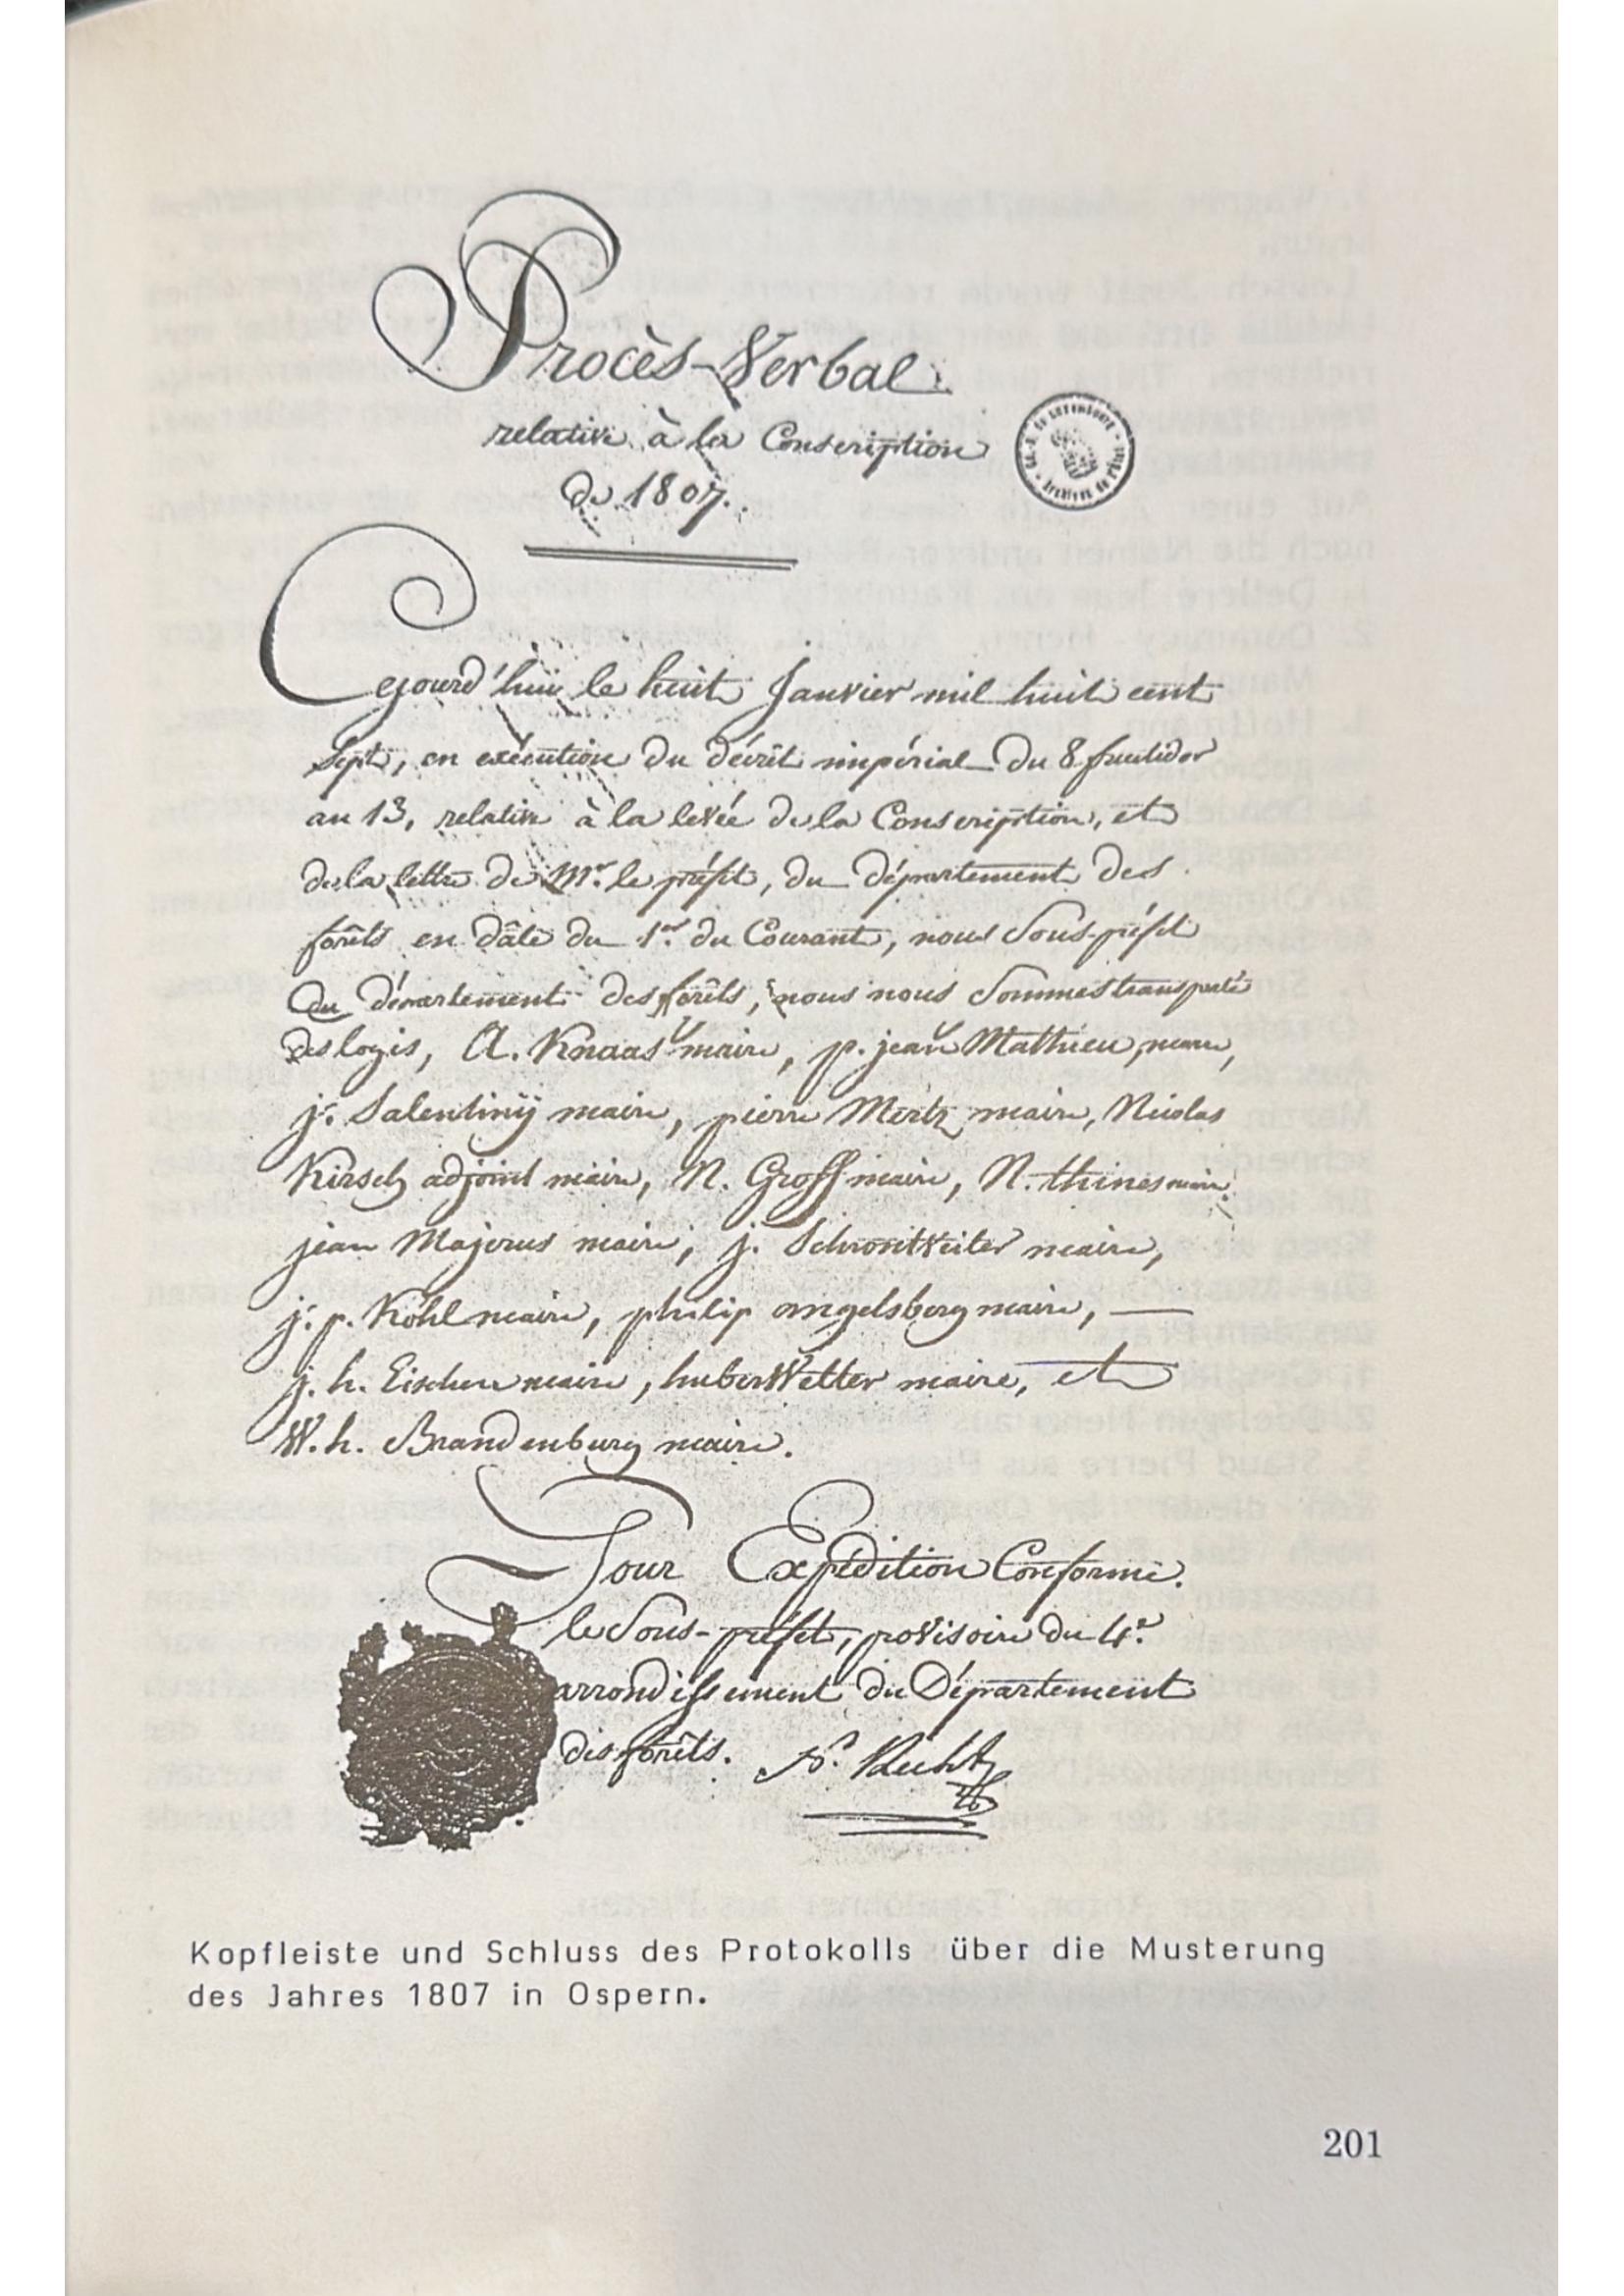 Procès-Verbal
relative à la Conscription
de 1807.
Cejourd'hui le huit Janvier mil huit cent
sept, en exécution du décrêt impérial du 8 fructidor
an 13, relative à la levée de la Conscription, et
de la lettre de Mr. le préfet, du département des
forêts en dâte du 1er. du Courant, nous Sous-préfet
du département des forêts, nous nous Sommes transporté
des logis, A. Knaas maire, p. jean Mathieu, maire,
j. Salentinÿ maire, pierre Mertz maire, Nicolas
Kirsch adjoint maire, N. Groff maire, N. thines maire
jean Majerus maire, j. Schrontweiler maire,
j. p. Köhl maire, philip angelsberg maire, —
j. h. Eischen maire, huber Wetter maire, et
W. h. Brandenburg maire.
Pour Expédition Conforme.
le Sous-préfet, provisoire du 4e.
arrondissement du Département
des forêts.
Kopfleiste und Schluss des Protokolls über die Musterung
des Jahres 1807 in Ospern.
201